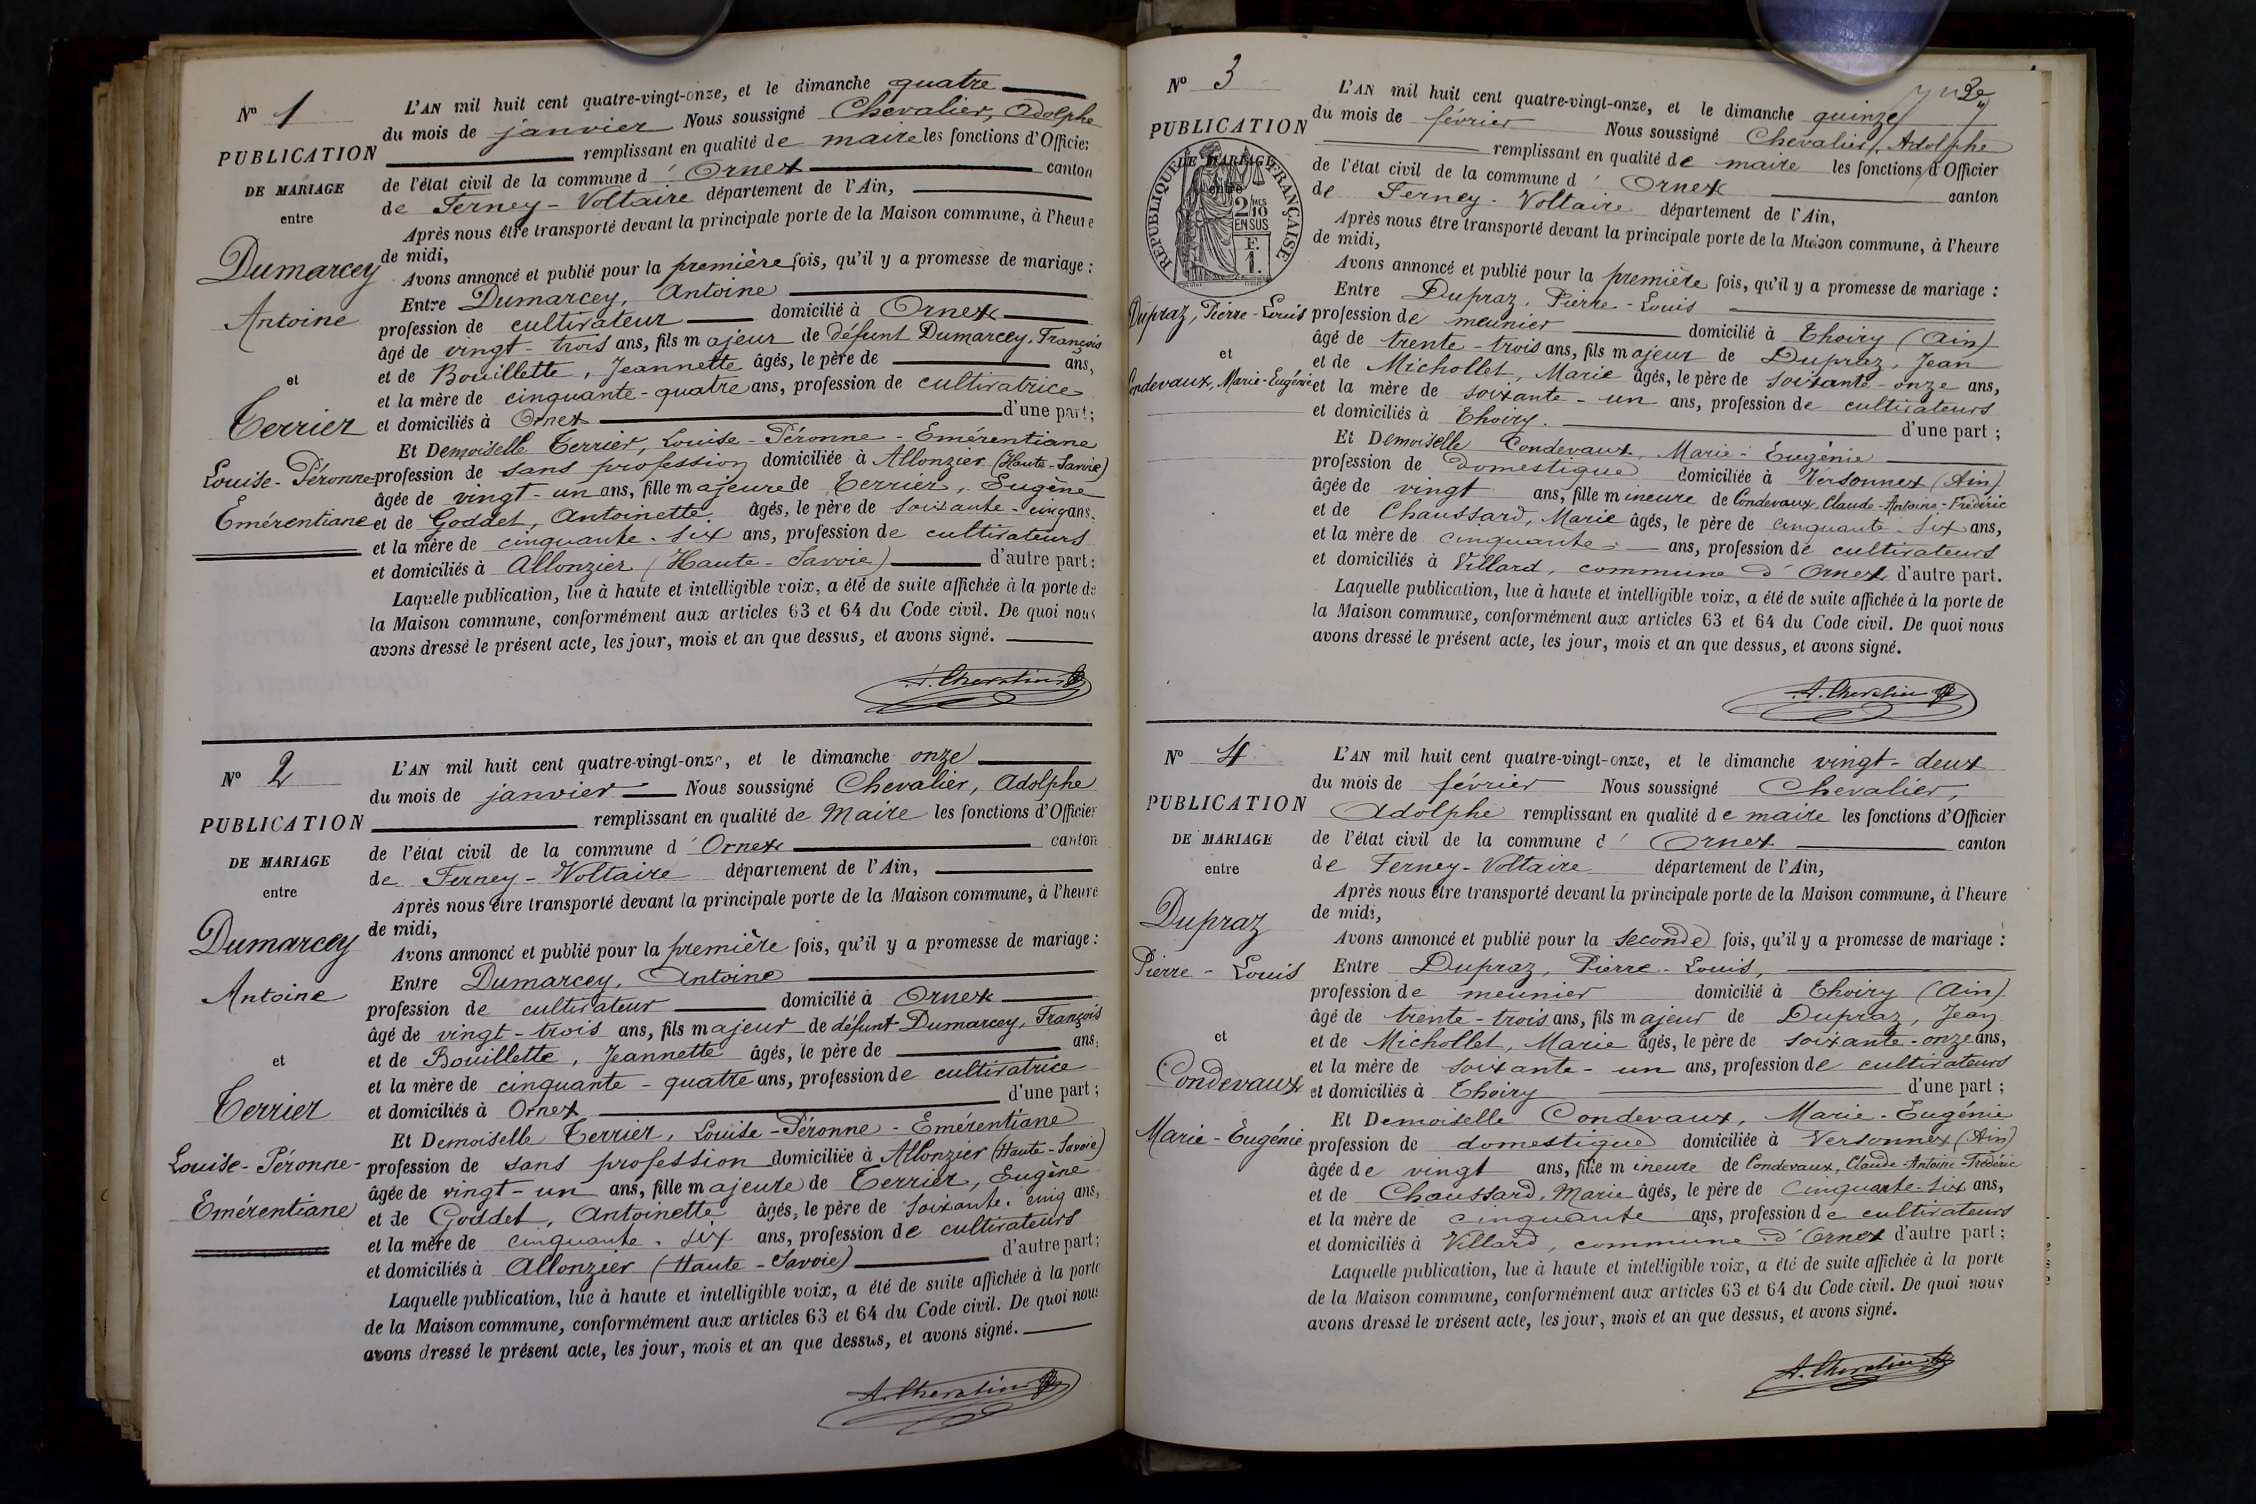 N° 1
PUBLICATION
DE MARIAGE
entre
Dumarcey
Antoine
et
Terrier
Louise-Péronne-
Emérentiane
L'AN mil huit cent quatre-vingt-onze, et le dimanche quatre
du mois de janvier Nous soussigné Chevalier, Adolphe
remplissant en qualité de maire les fonctions d'Officier
de l'état civil de la commune d'Ornex canton
de Ferney-Voltaire département de l'Ain,
Après nous être transporté devant la principale porte de la Maison commune, à l'heure
de midi,
Avons annoncé et publié pour la première fois, qu'il y a promesse de mariage :
Entre Dumarcey, Antoine
profession de cultivateur domicilié à Ornex
âgé de vingt-trois ans, fils majeur de défunt Dumarcey, François
et de Bouillette, Jeannette âgés, le père de ans,
et la mère de cinquante-quatre ans, profession de cultivatrice
et domiciliés à Ornex d'une part;
Et Demoiselle Terrier, Louise-Péronne-Emérentiane
profession de sans profession domiciliée à Allonzier (Haute-Savoie)
âgée de vingt-un ans, fille majeure de Terrier, Eugène
et de Goddet, Antoinette âgés, le père de soixante-cinq ans,
et la mère de cinquante-six ans, profession de cultivateurs
et domiciliés à Allonzier (Haute-Savoie) d'autre part:
Laquelle publication, lue à haute et intelligible voix, a été de suite affichée à la porte de
la Maison commune, conformément aux articles 63 et 64 du Code civil. De quoi nous
avons dressé le présent acte, les jour, mois et an que dessus, et avons signé.
A. Chevalier
N° 2
PUBLICATION
DE MARIAGE
entre
Dumarcey
Antoine
et
Terrier
Louise-Péronne-
Emérentiane
L'AN mil huit cent quatre-vingt-onze, et le dimanche onze
du mois de janvier Nous soussigné Chevalier, Adolphe
remplissant en qualité de Maire les fonctions d'Officier
de l'état civil de la commune d'Ornex canton
de Ferney-Voltaire département de l'Ain,
Après nous être transporté devant la principale porte de la Maison commune, à l'heure
de midi,
Avons annoncé et publié pour la première fois, qu'il y a promesse de mariage :
Entre Dumarcey, Antoine
profession de cultivateur domicilié à Ornex
âgé de vingt-trois ans, fils majeur de défunt Dumarcey, François
et de Bouillette, Jeannette âgés, le père de ans,
et la mère de cinquante-quatre ans, profession de cultivatrice
et domiciliés à Ornex d'une part;
Et Demoiselle Terrier, Louise-Péronne-Emérentiane
profession de sans profession domiciliée à Allonzier (Haute-Savoie)
âgée de vingt-un ans, fille majeure de Terrier, Eugène
et de Goddet, Antoinette âgés, le père de soixante-cinq ans,
et la mère de cinquante-six ans, profession de cultivateurs
et domiciliés à Allonzier (Haute-Savoie) d'autre part;
Laquelle publication, lue à haute et intelligible voix, a été de suite affichée à la porte
de la Maison commune, conformément aux articles 63 et 64 du Code civil. De quoi nous
avons dressé le présent acte, les jour, mois et an que dessus, et avons signé.
A. Chevalier
N° 3
PUBLICATION
DE MARIAGE
entre
RÉPUBLIQUE FRANÇAISE
2/10 MES
EN SUS
F.
1.
Dupraz, Pierre-Louis
et
Condevaux, Marie-Eugénie
L'AN mil huit cent quatre-vingt-onze, et le dimanche quinze
du mois de février Nous soussigné Chevalier, Adolphe
remplissant en qualité de maire les fonctions d'Officier
de l'état civil de la commune d'Ornex canton
de Ferney-Voltaire département de l'Ain,
Après nous être transporté devant la principale porte de la Maison commune, à l'heure
de midi,
Avons annoncé et publié pour la première fois, qu'il y a promesse de mariage :
Entre Dupraz, Pierre-Louis
profession de meunier domicilié à Thoiry (Ain)
âgé de trente-trois ans, fils majeur de Dupraz, Jean
et de Michollet, Marie âgés, le père de soixante-onze ans,
et la mère de soixante-un ans, profession de cultivateurs
et domiciliés à Thoiry. d'une part ;
Et Demoiselle Condevaux, Marie-Eugénie
profession de domestique domiciliée à Versonnex (Ain)
âgée de vingt ans, fille mineure de Condevaux, Claude-Antoine-Frédéric
et de Chaussard, Marie âgés, le père de cinquante-six ans,
et la mère de cinquante ans, profession de cultivateurs
et domiciliés à Villard, commune d'Ornex d'autre part.
Laquelle publication, lue à haute et intelligible voix, a été de suite affichée à la porte de
la Maison commune, conformément aux articles 63 et 64 du Code civil. De quoi nous
avons dressé le présent acte, les jour, mois et an que dessus, et avons signé.
A. Chevalier
N° 4
PUBLICATION
DE MARIAGE
entre
Dupraz
Pierre-Louis
et
Condevaux
Marie-Eugénie
L'AN mil huit cent quatre-vingt-onze, et le dimanche vingt-deux
du mois de février Nous soussigné Chevalier,
Adolphe remplissant en qualité de maire les fonctions d'Officier
de l'état civil de la commune d'Ornex canton
de Ferney-Voltaire département de l'Ain,
Après nous être transporté devant la principale porte de la Maison commune, à l'heure
de midi,
Avons annoncé et publié pour la seconde fois, qu'il y a promesse de mariage :
Entre Dupraz, Pierre-Louis,
profession de meunier domicilié à Thoiry (Ain)
âgé de trente-trois ans, fils majeur de Dupraz, Jean
et de Michollet, Marie âgés, le père de soixante-onze ans,
et la mère de soixante-un ans, profession de cultivateurs
et domiciliés à Thoiry d'une part ;
Et Demoiselle Condevaux, Marie-Eugénie
profession de domestique domiciliée à Versonnex (Ain)
âgée de vingt ans, fille mineure de Condevaux, Claude-Antoine-Frédéric
et de Chaussard, Marie âgés, le père de cinquante-six ans,
et la mère de cinquante ans, profession de cultivateurs
et domiciliés à Villard, commune d'Ornex d'autre part ;
Laquelle publication, lue à haute et intelligible voix, a été de suite affichée à la porte
de la Maison commune, conformément aux articles 63 et 64 du Code civil. De quoi nous
avons dressé le présent acte, les jour, mois et an que dessus, et avons signé.
A. Chevalier